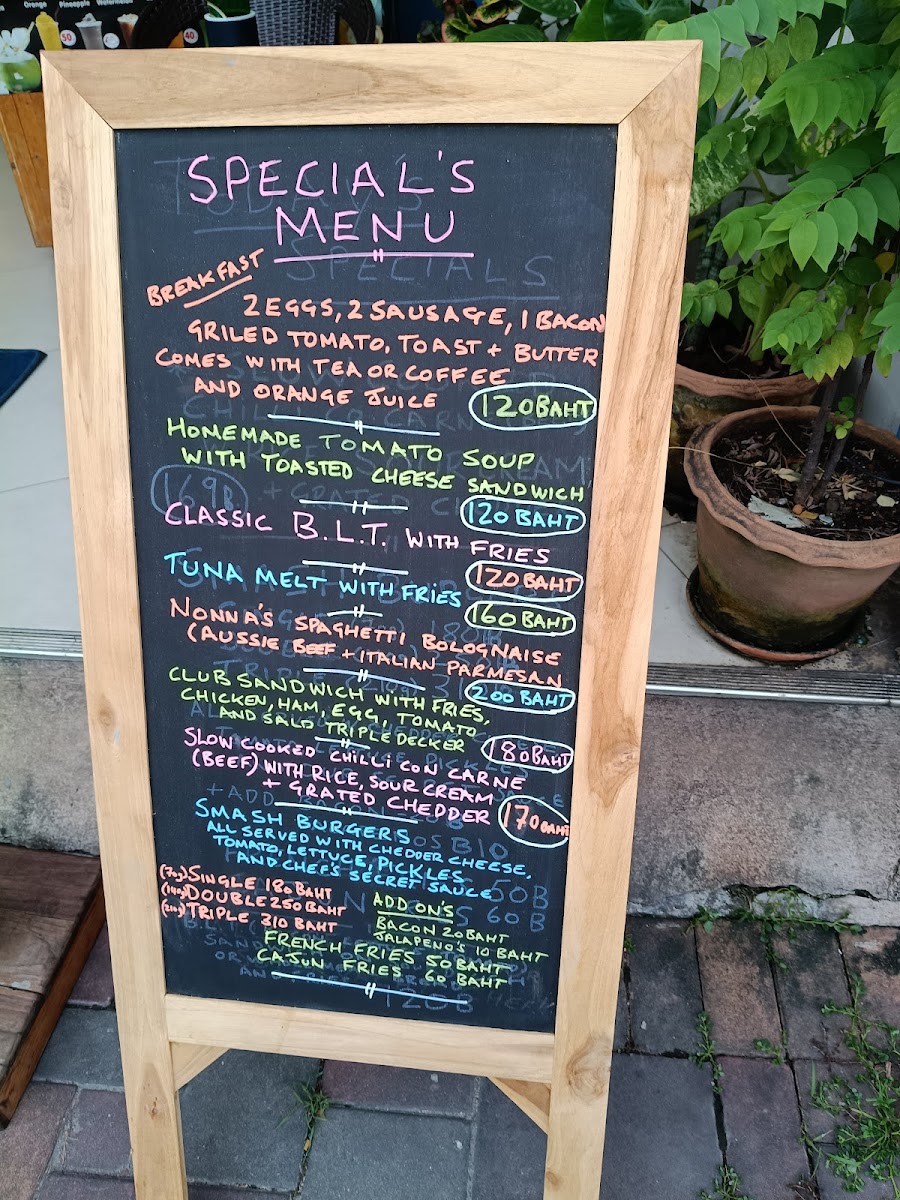 Orange Pineapple Watermelon
50
40
SPECIAL'S
MENU
BREAKFAST
2 EGGS, 2 SAUSAGE, 1 BACON
GRILED TOMATO, TOAST + BUTTER
COMES WITH TEA OR COFFEE
AND ORANGE JUICE
120 BAHT
HOMEMADE TOMATO SOUP
WITH TOASTED CHEESE SANDWICH
120 BAHT
CLASSIC B.L.T. WITH FRIES
120 BAHT
TUNA MELT WITH FRIES
160 BAHT
NONNA'S SPAGHETTI BOLOGNAISE
(AUSSIE BEEF + ITALIAN PARMESAN
200 BAHT
CLUB SANDWICH WITH FRIES,
CHICKEN, HAM, EGG, TOMATO
AND SALD TRIPLE DECKER
180 BAHT
SLOW COOKED CHILLI CON CARNE
(BEEF) WITH RICE, SOUR CREAM
+ GRATED CHEDDER
170 BAHT
SMASH BURGERS
ALL SERVED WITH CHEDDER CHEESE,
TOMATO, LETTUCE, PICKLES
AND CHEF'S SECRET SAUCE
(70g) SINGLE 180 BAHT
(140g) DOUBLE 250 BAHT
(210g) TRIPLE 310 BAHT
ADD ON'S
BACON 20 BAHT
JALAPENO'S 10 BAHT
FRENCH FRIES 50 BAHT
CAJUN FRIES 60 BAHT